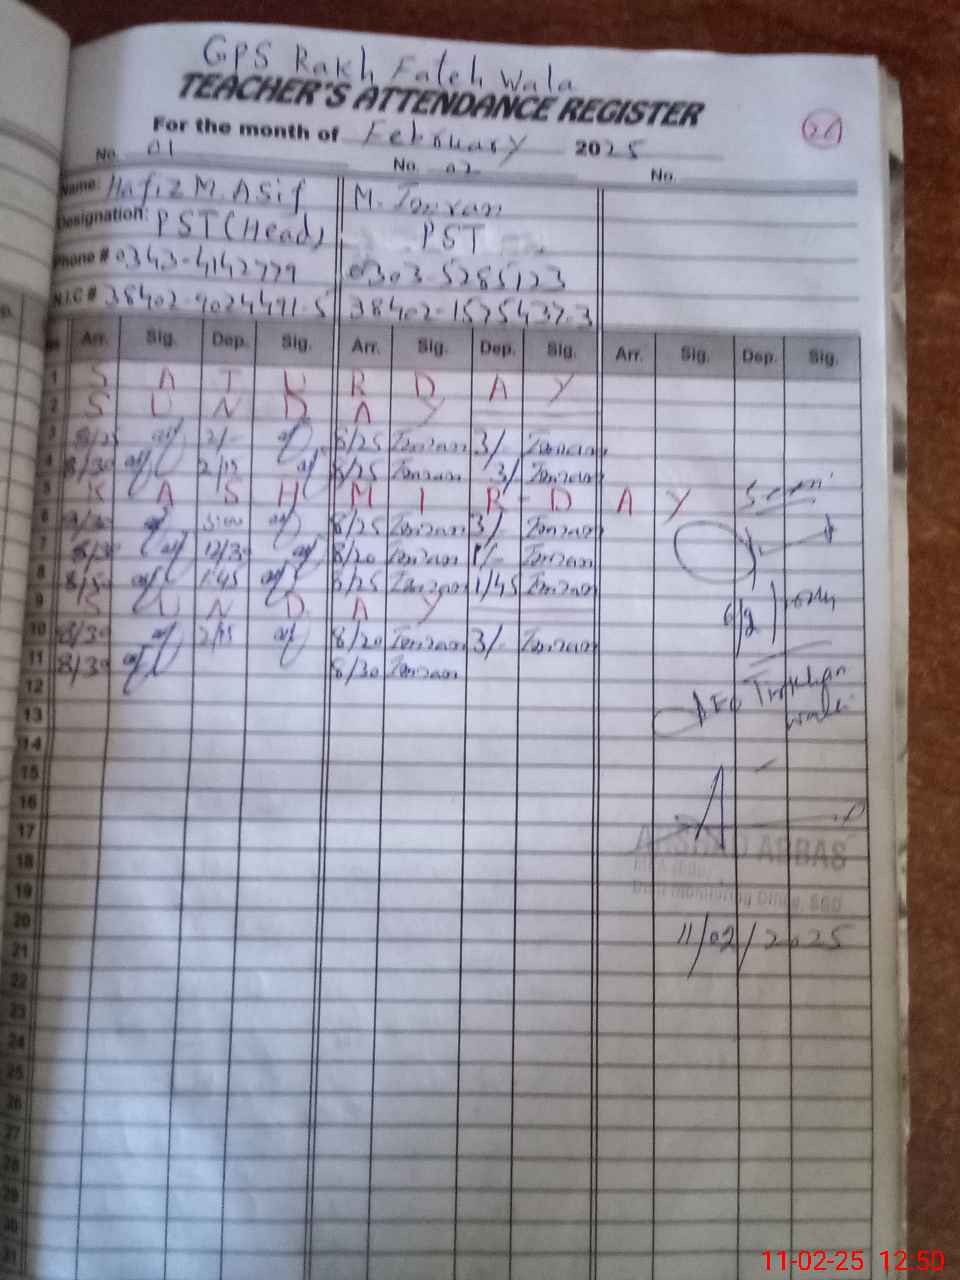 GPS Rakh Fateh Wala
TEACHER'S ATTENDANCE REGISTER
For the month of February 2025
26
No. 01 No. 02 No.
Name: Hafiz M. Asif M. Imran
Designation: PST (Head) PST
Phone # 0343-4142779 0303-5285123
N.I.C # 38402-9024491-5 38402-1575437-3
Arr. Sig. Dep. Sig. Arr. Sig. Dep. Sig. Arr. Sig. Dep. Sig.
1 S A T U R D A Y
2 S U N D A Y
3 8/25 2/- 8/25 Imran 3/- Imran
4 8/30 2/15 8/25 Imran 3/ Imran
5 K A S H M I R - D A Y
6 8/25 Imran 3/ Imran
7 8/30 12/30 8/20 Imran 1/- Imran
8 8/30 1:45 8/25 Imran 1/45 Imran
9 S U N D A Y
6/2
10 8/30 2/15 8/20 Imran 3/- Imran
11 8/30 8/30 Imran
12
AEO
13
14
15
16
17
ARSHAD ABBAS
18
19
20
11/02/2025
21
22
23
24
25
26
27
28
29
30
31
11-02-25 12:50